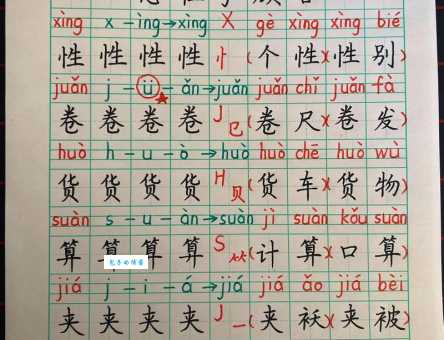 xìng x - ìng→xìng X gè xìng xìng bié
性 性 性 性 忄(个 性)(性 别)
juǎn j - ü - ǎn→juǎn juǎn chǐ juǎn fà
卷 卷 卷 卷 J 㔾(卷 尺)(卷 发)
huò h - u - ò→huò huò chē huò wù
货 货 货 货 H 贝(货 车)(货 物)
suàn s - u - àn→suàn jì suàn kǒu suàn
算 算 算 算 S ⺮(计 算)(口 算)
jiá j - i - á→jiá jiá ǎo jiá bèi
夹 夹 夹 夹 J 一(夹 袄)(夹 被)